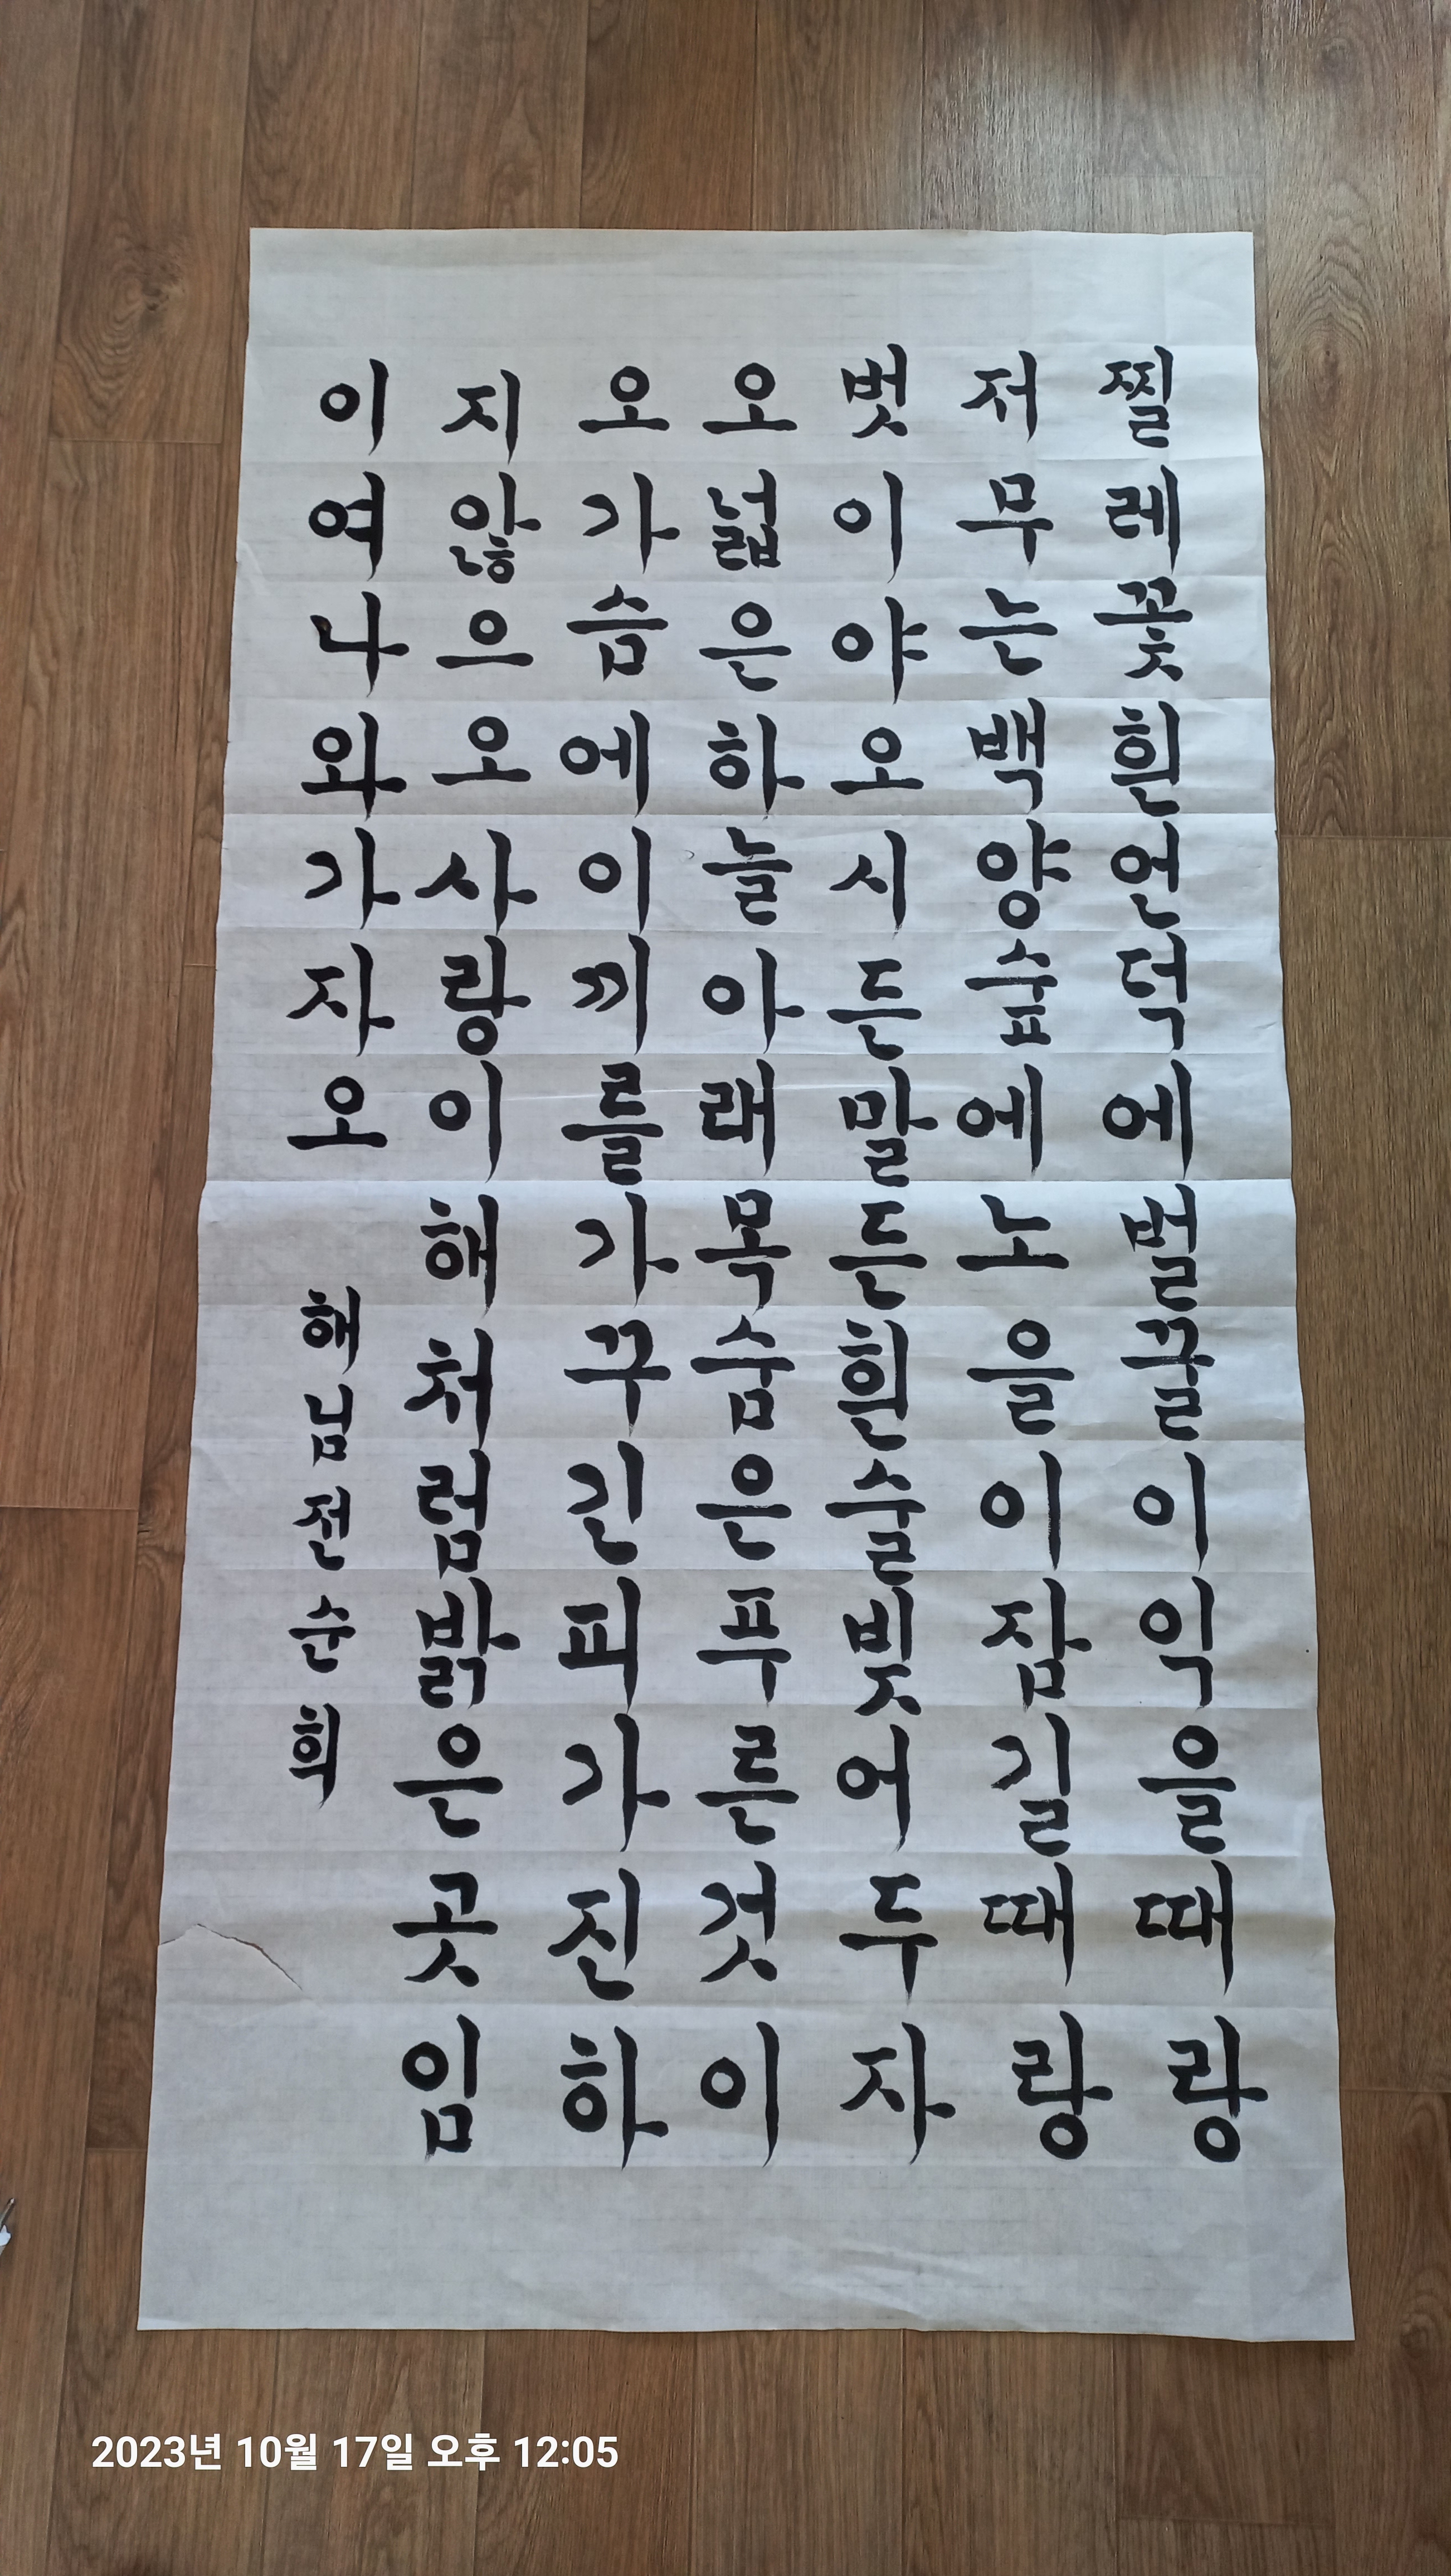 찔레꽃흰언덕에벌꿀이익을때랑
저무는백양숲에노을이잠길때랑
벗이야오시든말든흰술빚어두자
오넓은하늘아래목숨은푸른것이
오가슴에이끼를가꾸긴피가진하
지않으오사랑이해처럼밝은곳임
이여나와가자오
해님전순희
2023년 10월 17일 오후 12:05